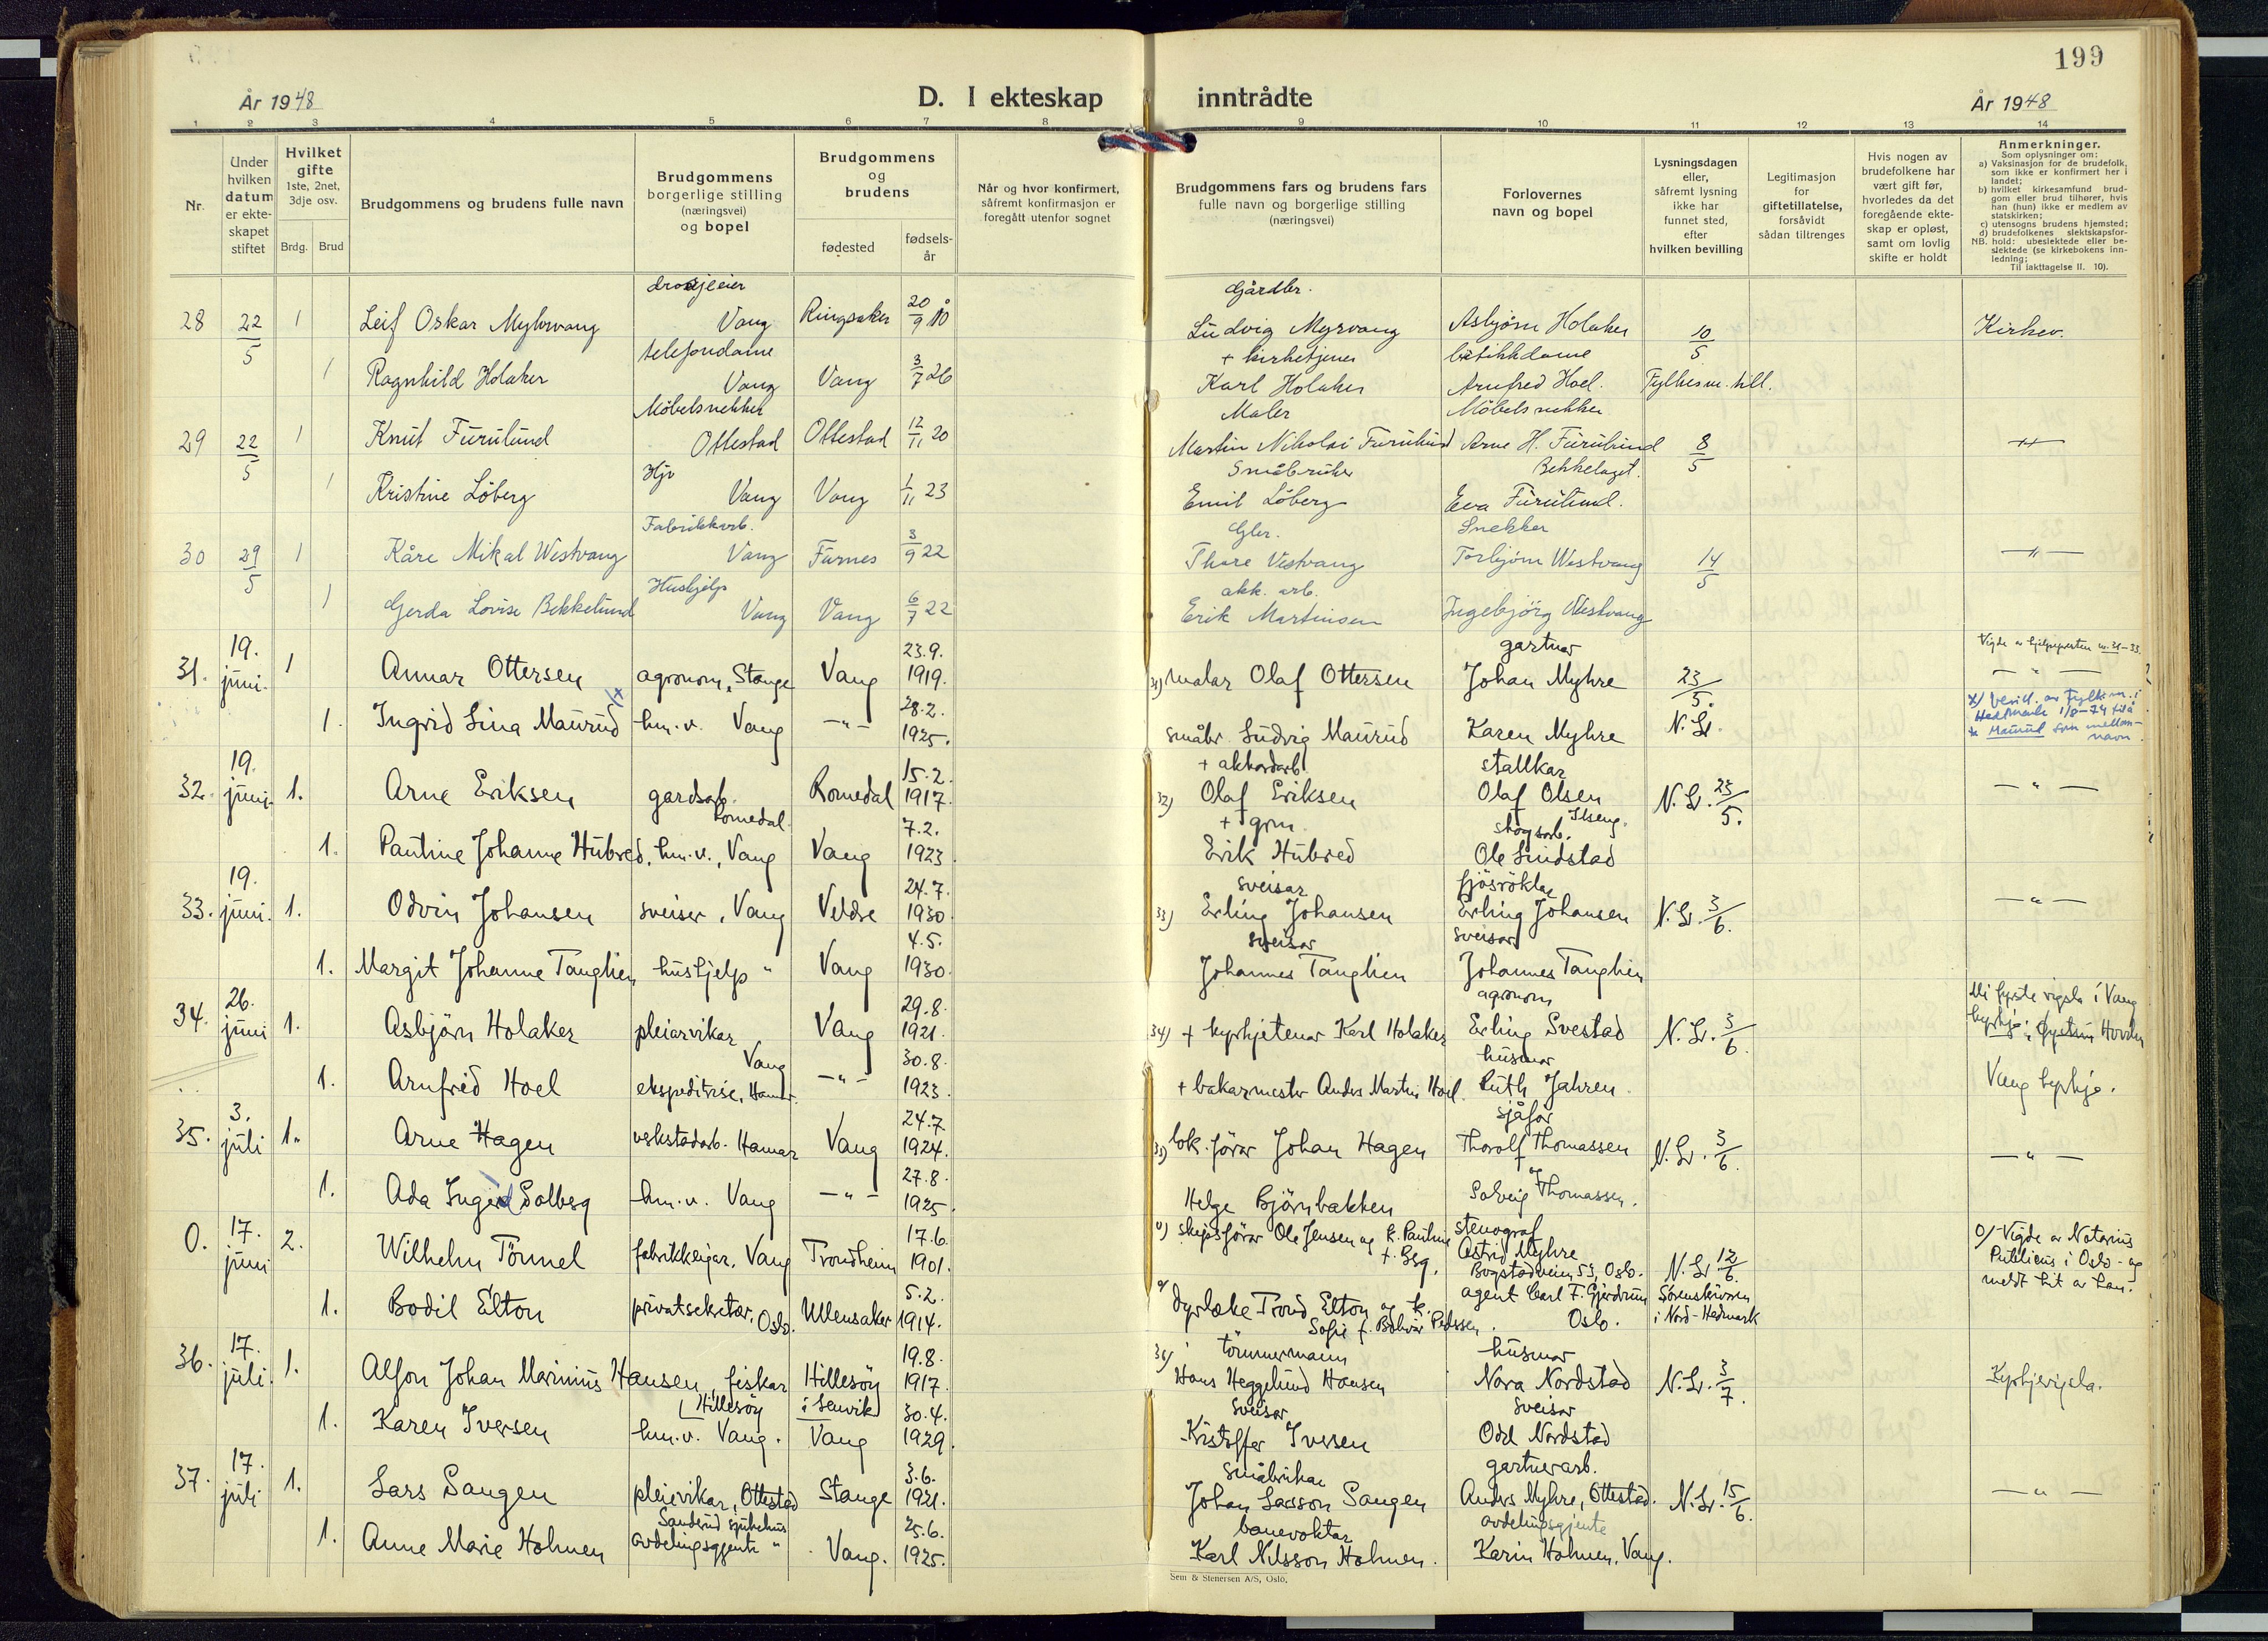 199
År 1948
D. I ekteskap inntrådte
År 1948
1 2 3 4 5 6 7 8 9 10 11 12 13 14
Nr.
Under hvilken datum er ekte-skapet stiftet
Hvilket gifte 1ste, 2net, 3dje osv.
Brdg. Brud
Brudgommens og brudens fulle navn
Brudgommens borgerlige stilling (næringsvei) og bopel
Brudgommens og brudens
fødested
fødsels-år
Når og hvor konfirmert, såfremt konfirmasjon er foregått utenfor sognet
Brudgommens fars og brudens fars fulle navn og borgerlige stilling (næringsvei)
Forlovernes navn og bopel
Lysningsdagen eller, såfremt lysning ikke har funnet sted, efter hvilken bevilling
Legitimasjon for giftetillatelse, forsåvidt sådan tiltrenges
Hvis nogen av brudefolkene har vært gift før, hvorledes da det foregående ekte-skap er opløst, samt om lovlig skifte er holdt
Anmerkninger.
Som oplysninger om:
a) Vaksinasjon for de brudefolk, som ikke er konfirmert her i landet;
b) hvilket kirkesamfund brud-gom eller brud tilhører, hvis han (hun) ikke er medlem av statskirken;
c) utensogns brudens hjemsted;
d) brudefolkenes slektskapsfor-hold: ubeslektede eller be-slektede (se kirkebokens inn-ledning;
NB.
Til iakttagelse II. 10).
drosjeeier Gårdbr.
28 22/5 1 Leif Oskar Myhrvang Vang Ringsaker 20/9 10 Ludvig Myrvang Asbjørn Holaker 10/5 Kirkev.
telefondame + kirketjener butikkdame
1 Ragnhild Holaker Vang Vang 3/7 26 Karl Holaker Arnfred Hoel. Fylkesm. till.
Møbelsnekker Maler Møbelsnekker
29 22/5 1 Knut Furulund Ottestad Ottestad 12/11 20 Martin Nikolai Furulund Arne H. Furulund 8/5 —"—
Hjv Småbruker Bekkelaget.
1 Kristine Löberg Vang Vang 1/11 23 Emil Löberg Eva Furulund.
Fabrikkarb. Gbr. Snekker
30 29/5 1 Kåre Mikal Westvang Vang Furnes 3/9 22 Thore Vestvang Torbjørn Westvang 14/5 —"—
Hushjelp akk. arb.
1 Gerda Lovise Bekkelund Vang Vang 6/7 22 Erik Martinsen Ingebjörg Westvang
19. 23.9. gartner Vigde av hjelpepresten nr. 31-33.
31. juni. 1 Annar Ottersen agronom, Stange Vang 1919. 31) malar Olaf Ottersen Johan Myhre 23/5. —"—
28.2. x) bevill. av Fylkesm. i
1. Ingrid Lina Maurud x hm.v. Vang —"— 1925. småbr. Ludvig Maurud Karen Myhre N.Lr. Hedmark 1/8-74 til å
Maurud som mellom-navn.
19. 15.2. + akkordarb. stallkar
32. juni. 1. Arne Eriksen gardsarb. Romedal Romedal 1917. 32) Olaf Eriksen Olaf Olsen Ilseng. N.Lr. 25/5. —"—
7.2. + grm. skogsarb.
1. Pauline Johanne Hubred, hm.v., Vang Vang 1923. Erik Hubred Ole Lindstad
19. 24.7. sveisar fjösröktar
33. juni. 1. Odvin Johansen sveiser, Vang Veldre 1930. 33) Erling Johansen Erling Johansen N.Lr. 3/6. —"—
4.5. sveisar sveisar
1. Margit Johanne Tanglien hushjelp " Vang 1930. Johannes Tanglien Johannes Tanglien
26. 29.8. agronom Mi fyrste vigsle i Vang
34. juni 1. Asbjörn Holaker pleiarvikar Vang Vang 1921. 34) + kyrkjetenar Karl Holaker Erling Svestad N.Lr. 3/6. kyrkje: Hovden
30.8. husmor
1. Arnfrid Hoel ekspeditrise, Hamar. —"— 1923. + bakarmester Anders Martin Hoel. Ruth Jahren. Vang kyrkje.
3. 24.7. sjåfør
35. juli 1. Arne Hagen verkstadarb. Hamar Vang 1924. 35) lok. förar Johan Hagen Thorolf Thomassen N.Lr. 3/6. —"—
27.8. og
1. Ada Ingrid Solberg hm.v. Vang —"— 1925. Helge Björnbakken Solveig Thomassen.
17. 17.6. 0) skipsförar Ole Jensen og k. Pauline f. Berg. stenograf 0) Vigde av Notarius
0. juni 2. Wilhelm Tönnel fabrikkeigar, Vang Trondheim 1901. Astrid Myhre Bogstadveien 53, Oslo. N.Lr 12/6. Publicus i Oslo - og meldt hit av han.
5.2. agent Carl F. Gjerdrum Sorenskrivaren
1. Bodil Elton privatsekretær, Oslo. Ullensaker 1914. dyrlæke Trond Elton og k. Sofie f. Bolivar Pedersen. Oslo. i Nord-Hedmark
17. 19.8. tömmermann husmor
36. juli. 1. Alfon Johan Marinius Hansen, fiskar Hillesöy Hillesöy i Senvik 1917. 36) Hans Heggelund Hansen Nora Nordstad N.Lr. 3/7. Kyrkjevigsla.
30.4. sveisar sveisar
1. Karen Iversen hm.v. Vang. Vang 1929. Kristoffer Iversen Odd Nordstad
17. 3.6. småbrukar gartnerarb.
37. juli 1. Lars Saugen pleievikar, Ottestad Stange 1921. Johan Larsson Saugen Anders Myhre, Ottestad. N.Lr. 15/6. —"—
Sanderud sjukehus 25.6. banevoktar avdelingsgjente
1. Anne Marie Holmen avdelingsgjente " Vang. 1925. Karl Nilsson Holmen. Karin Holmen, Vang.
Sem & Stenersen A/S, Oslo.